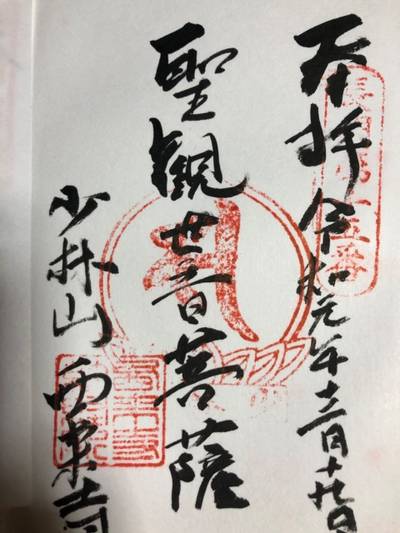 奉拝 令和元年十二月十九日
聖観世音菩薩
少林山 西来寺